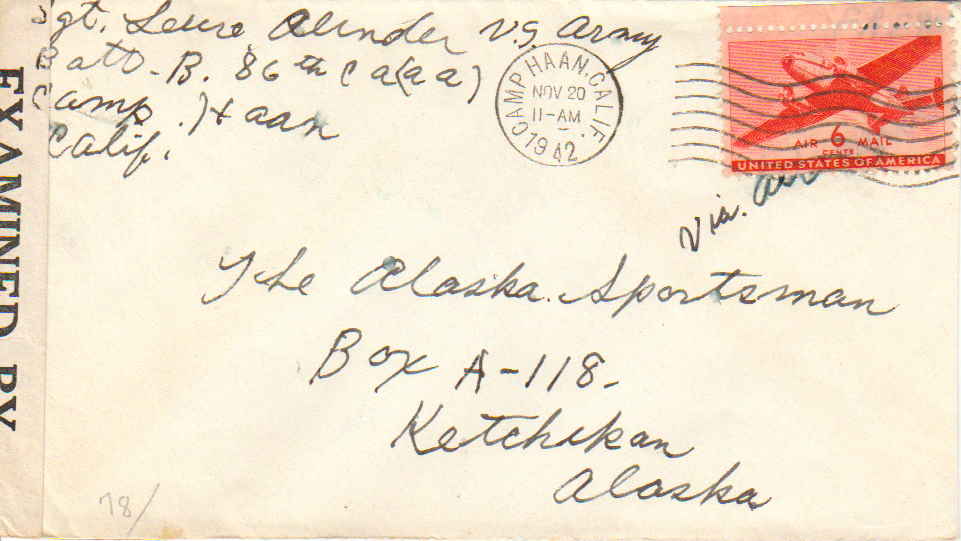 Sgt. Alunder U.S. Army
Batt - B. 86th CA (AA)
Camp Haan
Calif.
CAMP HAAN, CALIF.
NOV 20
11-AM
1942
AIR 6 MAIL
CENTS
UNITED STATES OF AMERICA
Via. Air
The Alaska Sportsman
Box A-118-
Ketchikan
Alaska
EXAMINED BY
78/